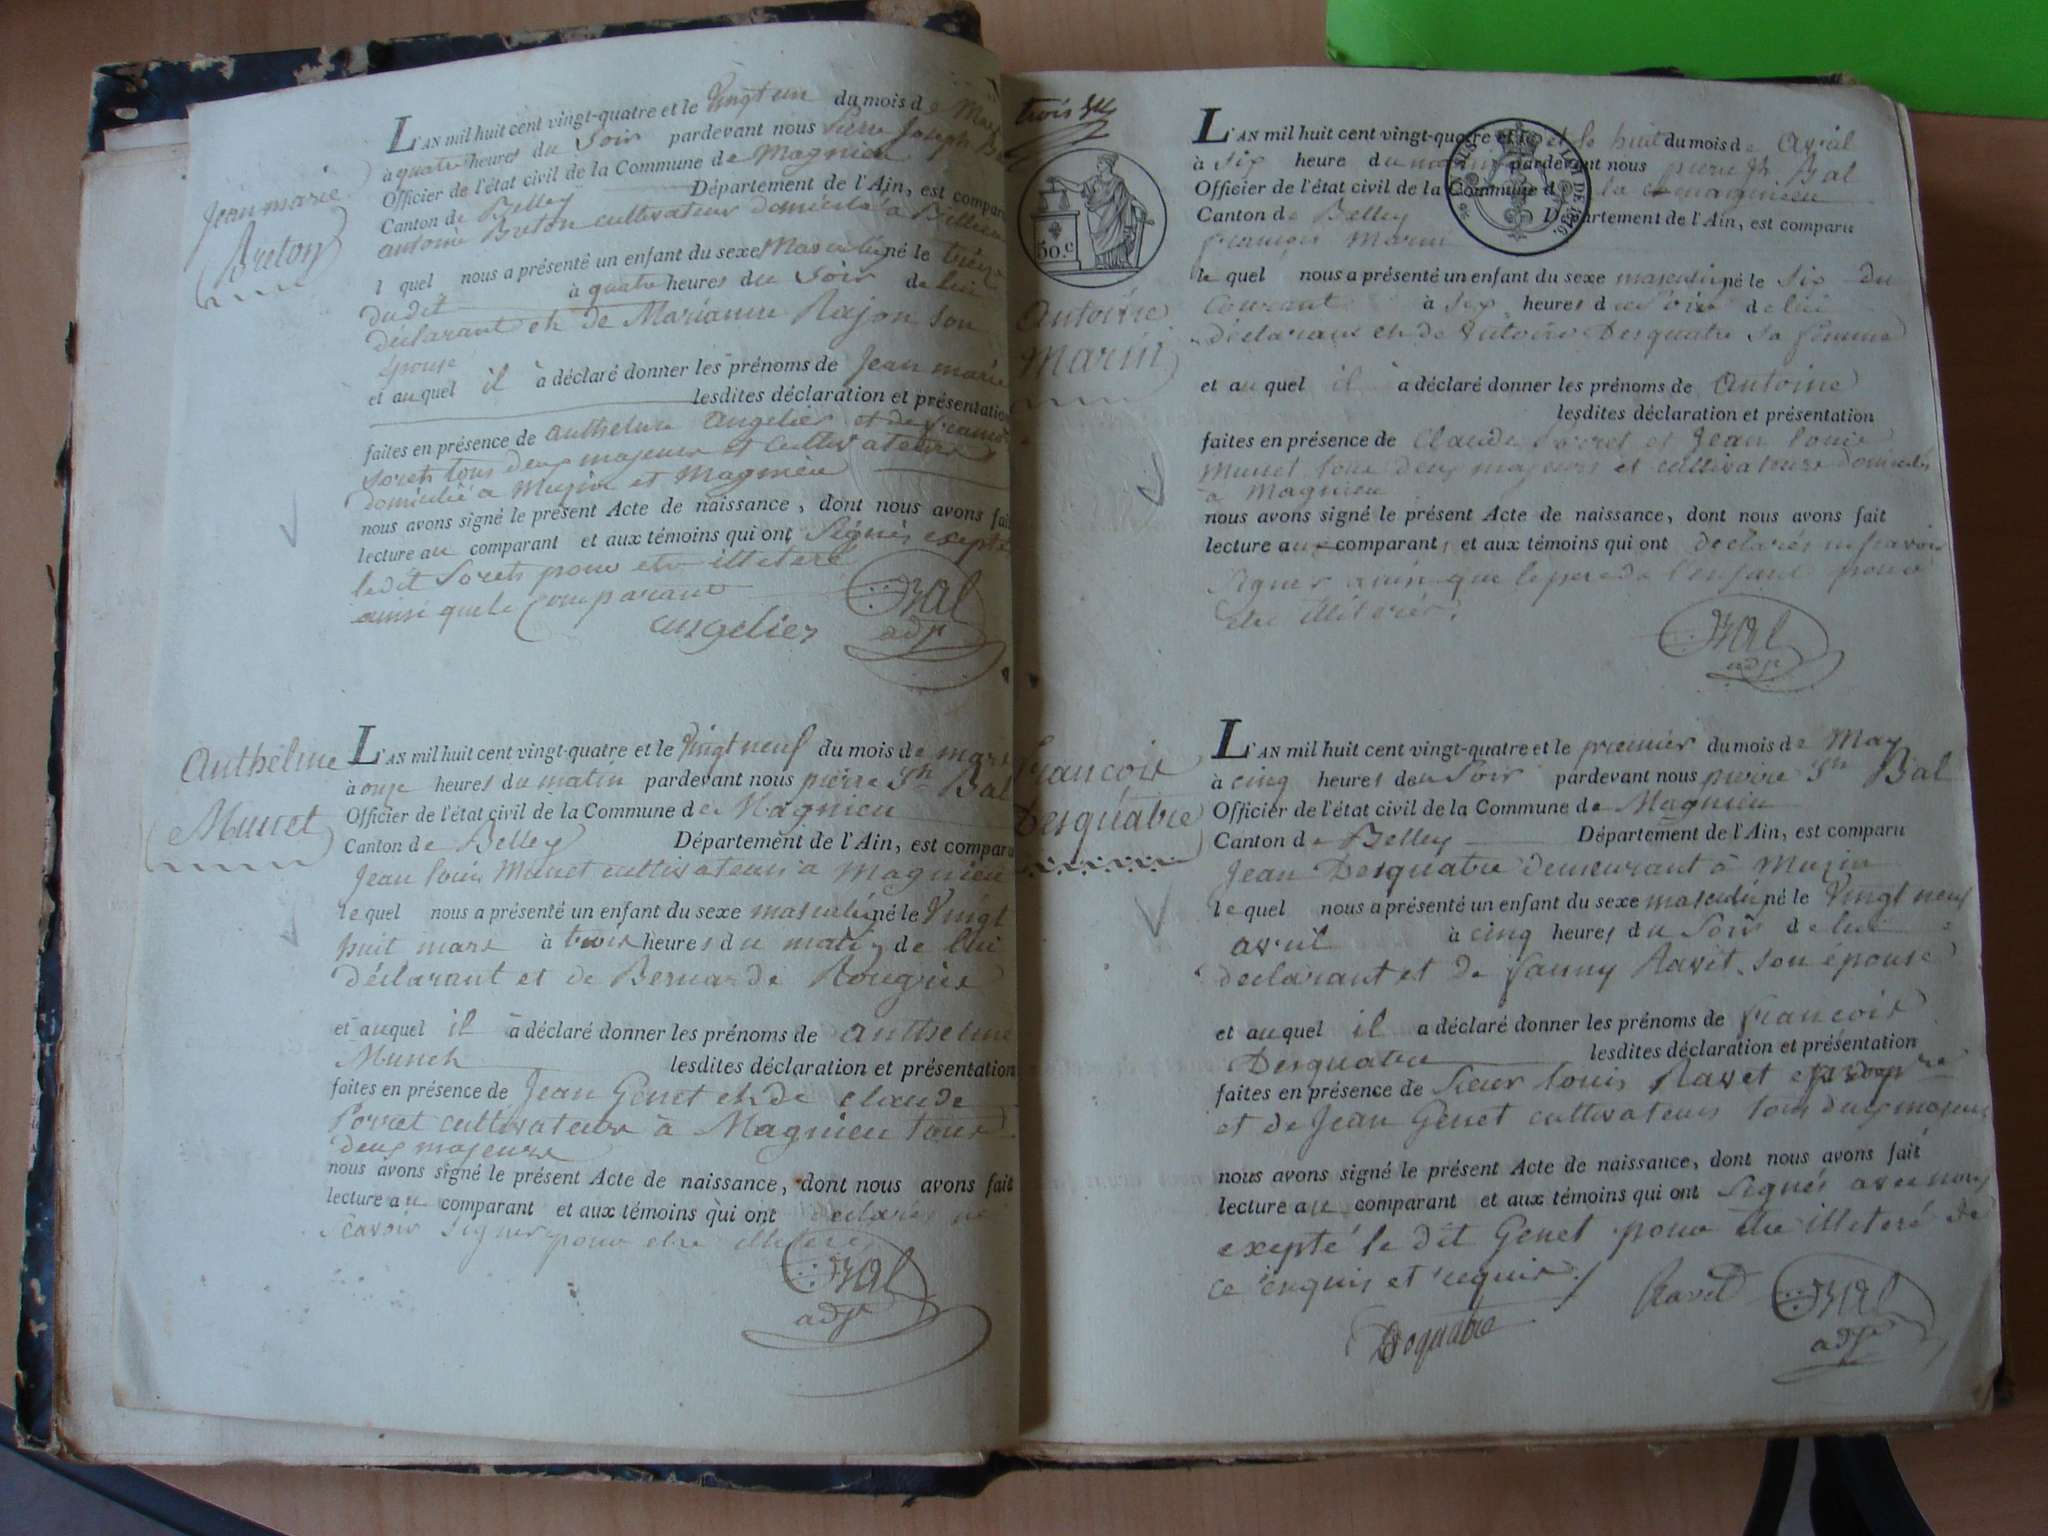 Jean marie
Breton
L'AN mil huit cent vingt-quatre et le vingt un du mois de
à quatre heures du Soir pardevant nous Pierre Joseph
Officier de l'état civil de la Commune de Magnieu
Canton de Belley Département de l'Ain, est comparu
antoine Breton cultivateur domicilié à
l quel nous a présenté un enfant du sexe Masculin né le
dudit à quatre heures du Soir de lui
déclarant et de Marianne Rajon son
épouse
et auquel il à déclaré donner les prénoms de Jean marie
lesdites déclaration et présentation
faites en présence de anthelme angelier et de
soret tous deux majeurs et cultivateurs
domicilié a Muzin et Magnieu
nous avons signé le présent Acte de naissance, dont nous avons fait
lecture au comparant et aux témoins qui ont Signés exepté
ledit Soret pour etre illeteré
ainsi que le Comparant
angelier
Bal
adjt
Anthelme
Munet
L'AN mil huit cent vingt-quatre et le vingt neuf du mois de mars
à onze heures du matin pardevant nous pierre Jh Bal
Officier de l'état civil de la Commune de Magnieu
Canton de Belley Département de l'Ain, est comparu
Jean louis Munet cultivateur a Magnieu
le quel nous a présenté un enfant du sexe masculin né le Vingt
huit mars à trois heures du matin de lui
déclarant et de Bernarde
et auquel il à déclaré donner les prénoms de anthelme
Munet lesdites déclaration et présentation
faites en présence de Jean Genet et de claude
cultivateur à Magnieu tous
deux majeurs
nous avons signé le présent Acte de naissance, dont nous avons fait
lecture au comparant et aux témoins qui ont declarés ne
scavoir signer pour etre illeteré
Bal
adjt
trois
50.c
Antoine
Marin
L'AN mil huit cent vingt-quatre et le et le huit du mois de Avril
à six heure du matin pardevant nous pierre Jh Bal
Officier de l'état civil de la Commune d
Canton de Belley Département de l'Ain, est comparu
françois Marin
LOI DE 1816.
le quel nous a présenté un enfant du sexe masculin né le six du
Courant à six heures du soir de lui
déclarant et de Antoine Desquatre sa femme
et auquel il à déclaré donner les prénoms de Antoine
lesdites déclaration et présentation
faites en présence de Claude et Jean louis
Munet tous deux majeurs et cultivateurs domiciliés
à Magnieu
nous avons signé le présent Acte de naissance, dont nous avons fait
lecture aux comparants et aux témoins qui ont declarés ne savoir
signer ainsi que le pere de l'enfant pour
etre
Bal
adjt
françois
Desquatre
L'AN mil huit cent vingt-quatre et le premier du mois de May
à cinq heures du Soir pardevant nous pierre Jh Bal
Officier de l'état civil de la Commune de Magnieu
Canton de Belley Département de l'Ain, est comparu
Jean Desquatre demeurant à Muzin
le quel nous a présenté un enfant du sexe masculin né le Vingt neuf
avril à cinq heures du Soir de lui
declarant et de fanny Ravet son épouse
et auquel il a déclaré donner les prénoms de françois
Desquatre lesdites déclaration et présentation
faites en présence de Sieur louis Ravet
et de Jean Genet cultivateurs tous deux majeurs
nous avons signé le présent Acte de naissance, dont nous avons fait
lecture au comparant et aux témoins qui ont Signés avec nous
exepté le dit Genet pour etre illeteré de
ce enquis et requis
Desquatre
Ravet
Bal
adjt